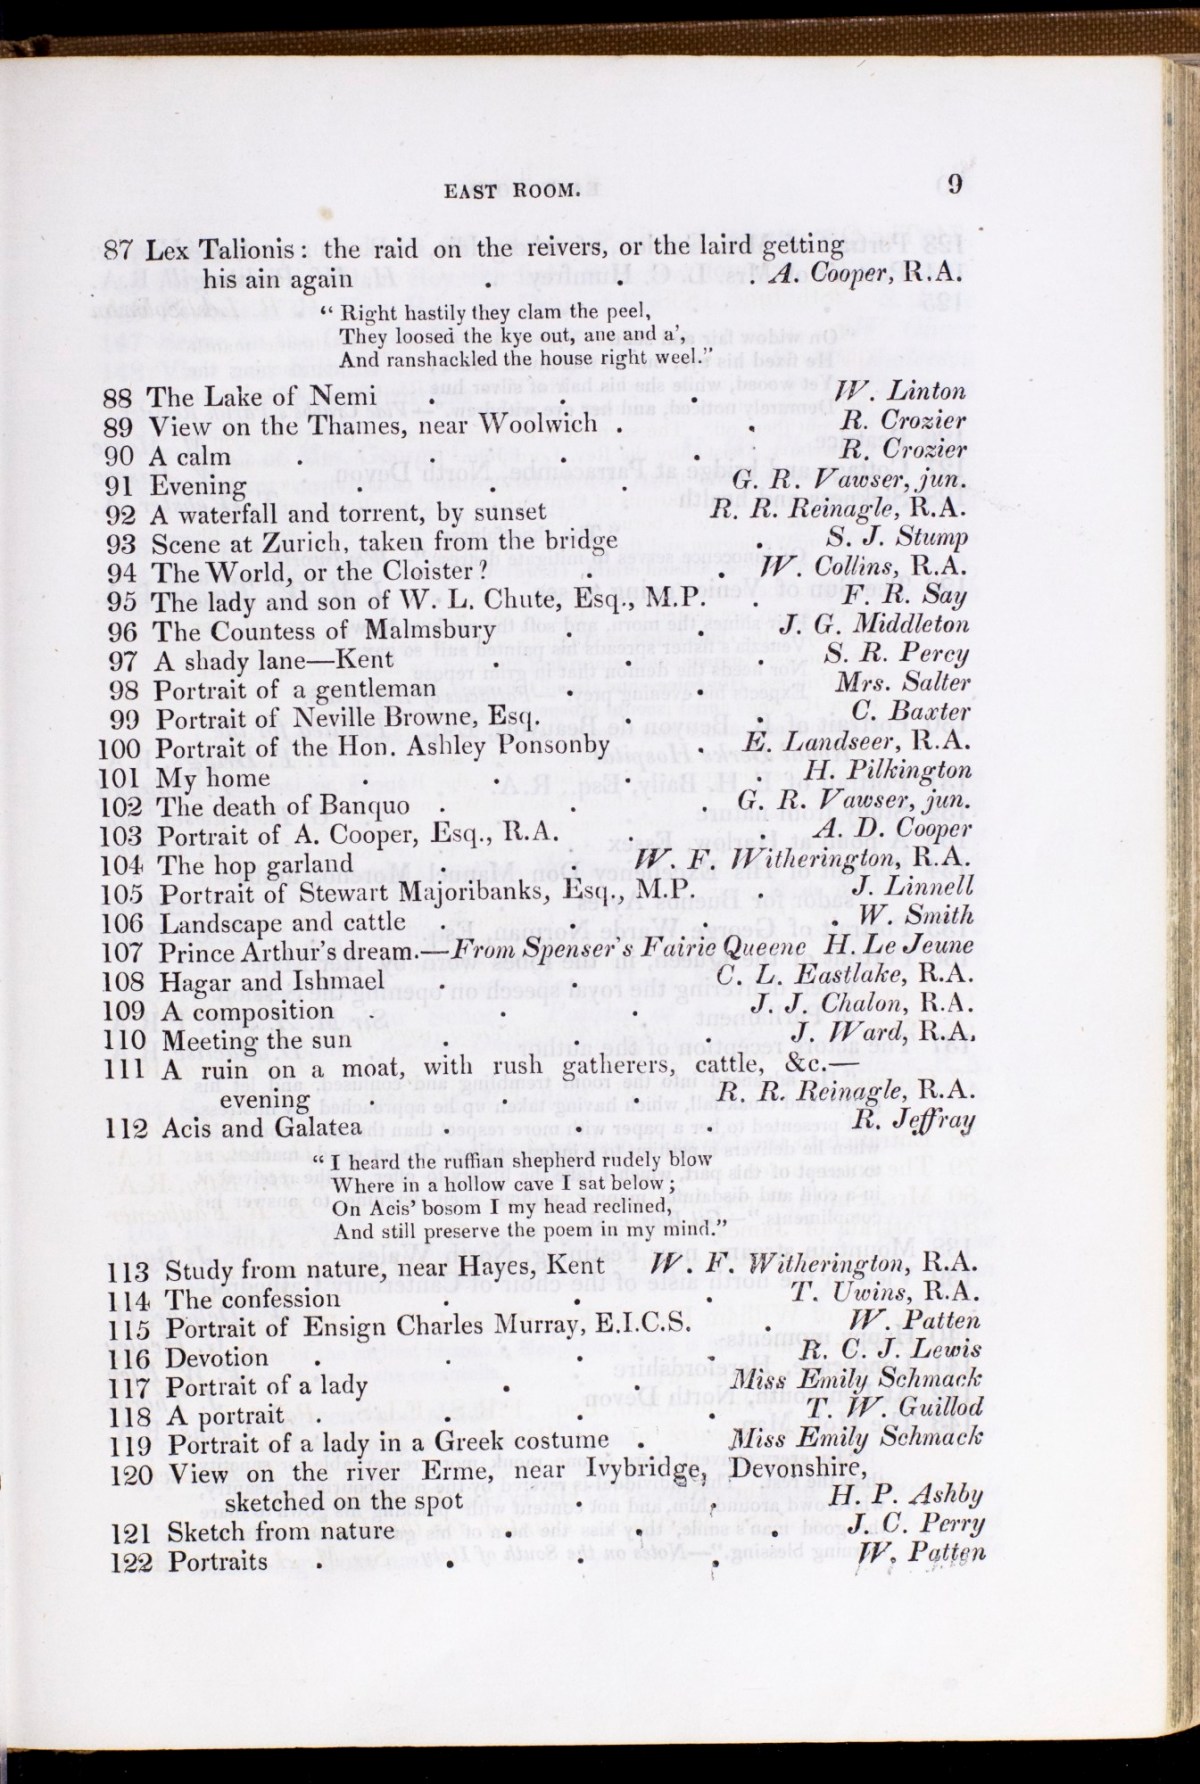 EAST ROOM. 9
87 Lex Talionis: the raid on the reivers, or the laird getting
his ain again . . . A. Cooper, R.A.
“ Right hastily they clam the peel,
They loosed the kye out, ane and a’,
And ranshackled the house right weel.”
88 The Lake of Nemi . . . W. Linton
89 View on the Thames, near Woolwich . . R. Crozier
90 A calm . . . . R. Crozier
91 Evening . . . G. R. Vawser, jun.
92 A waterfall and torrent, by sunset R. R. Reinagle, R.A.
93 Scene at Zurich, taken from the bridge . S. J. Stump
94 The World, or the Cloister? . . W. Collins, R.A.
95 The lady and son of W. L. Chute, Esq., M.P. . F. R. Say
96 The Countess of Malmsbury . . J. G. Middleton
97 A shady lane—Kent . . . S. R. Percy
98 Portrait of a gentleman . . Mrs. Salter
99 Portrait of Neville Browne, Esq. . . C. Baxter
100 Portrait of the Hon. Ashley Ponsonby . E. Landseer, R.A.
101 My home . . . . H. Pilkington
102 The death of Banquo . . . G. R. Vawser, jun.
103 Portrait of A. Cooper, Esq., R.A. . . A. D. Cooper
104 The hop garland . W. F. Witherington, R.A.
105 Portrait of Stewart Majoribanks, Esq., M.P. . J. Linnell
106 Landscape and cattle . . . . W. Smith
107 Prince Arthur’s dream.—From Spenser’s Fairie Queene H. Le Jeune
108 Hagar and Ishmael . . C. L. Eastlake, R.A.
109 A composition . . J. J. Chalon, R.A.
110 Meeting the sun . . . J. Ward, R.A.
111 A ruin on a moat, with rush gatherers, cattle, &c.—
evening . . . R. R. Reinagle, R.A.
112 Acis and Galatea . . . R. Jeffray
“ I heard the ruffian shepherd rudely blow
Where in a hollow cave I sat below;
On Acis’ bosom I my head reclined,
And still preserve the poem in my mind.”
113 Study from nature, near Hayes, Kent W. F. Witherington, R.A.
114 The confession . . . T. Uwins, R.A.
115 Portrait of Ensign Charles Murray, E.I.C.S. . W. Patten
116 Devotion . . . . R. C. J. Lewis
117 Portrait of a lady . . Miss Emily Schmack
118 A portrait . . . . T. W. Guillod
119 Portrait of a lady in a Greek costume . Miss Emily Schmack
120 View on the river Erme, near Ivybridge, Devonshire,
sketched on the spot . . H. P. Ashby
121 Sketch from nature . . . J. C. Perry
122 Portraits . . . . W. Patten